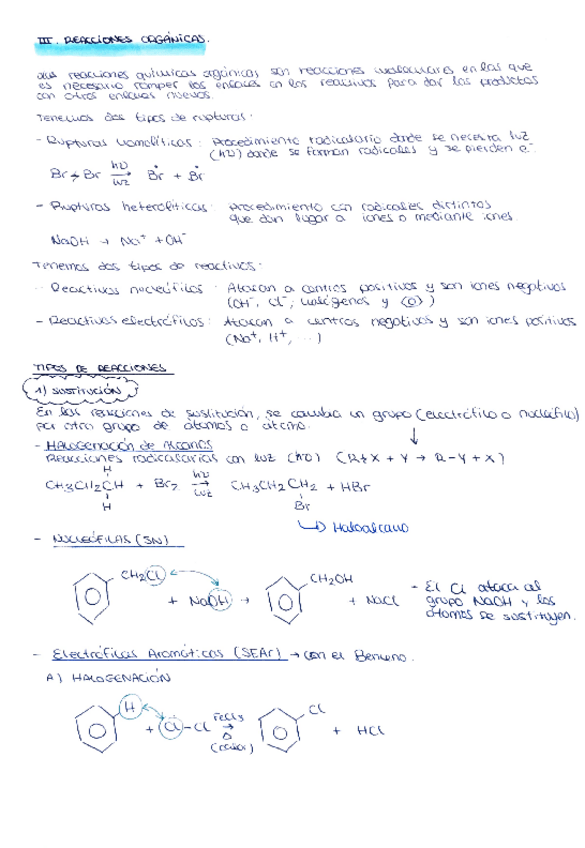 III. REACCIONES ORGÁNICAS.
reacciones químicas orgánicas son reacciones moleculares en las que
es necesario romper los enlaces en los reactivos para dar los productos
con otros enlaces nuevos.
Tenemos dos tipos de rupturas:
- Rupturas homolíticas: Procedimiento radicalario donde se necesita luz
(hν) donde se forman radicales y se pierden e⁻
Br Br hν → luz Br• + Br•
- Rupturas heterolíticas: Procedimiento con radicales distintos
que dan lugar a iones o mediante iones.
NaOH → Na⁺ + OH⁻
Tenemos dos tipos de reactivos:
- Reactivos nucleófilos: Atacan a centros positivos y son iones negativos
(OH⁻, Cl⁻, halógenos y )
- Reactivos electrófilos: Atacan a centros negativos y son iones positivos
(Na⁺, H⁺, ...)
TIPOS DE REACCIONES
1) SUSTITUCIÓN
En las reacciones de sustitución, se cambia un grupo (electrófilo o nucleófilo)
por otro grupo de átomos o átomo.
- HALOGENACIÓN DE ALCANOS
Reacciones radicalarias con luz (hν) (R-X + Y → R-Y + X)
H
CH3CH2CH + Br2 hν → luz CH3CH2CH2 + HBr
H
Br
↳ Haloalcano
- NUCLEÓFILAS (SN)
CH2Cl + NaOH → CH2OH + NaCl
- El Cl ataca al
grupo NaOH y los
átomos se sustituyen.
- Electrófilas Aromáticas (SEAr) → con el Benceno.
A) HALOGENACIÓN
H + Cl-Cl FeCl3 → Δ (calor) Cl + HCl